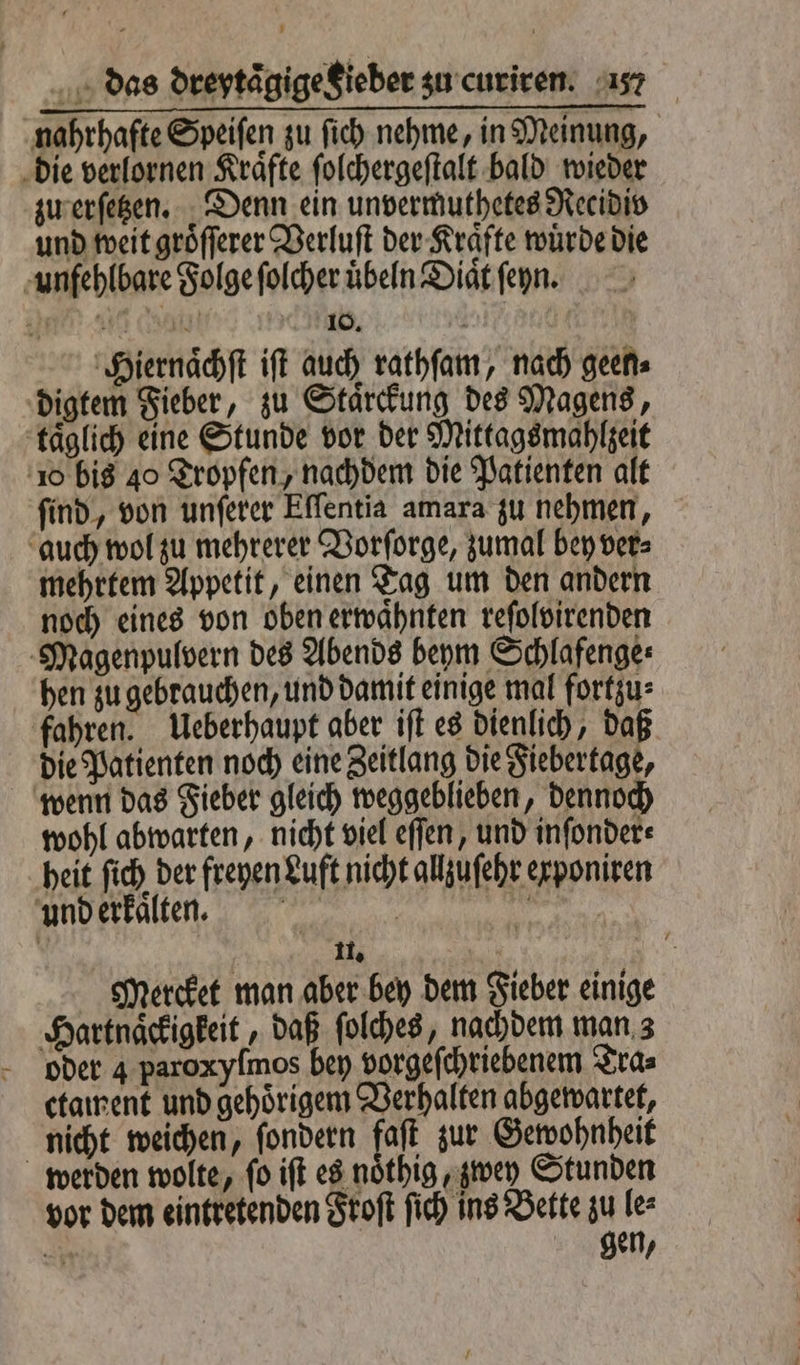 das dreytaͤgige Fieber zu curiren. 157
nahrhafte Speiſen zu ſich nehme, in Meinung,
die verlornen Kraͤfte ſolchergeſtalt bald wieder
zu erſetzen. Denn ein unvermuthetes Recidiv
und weit groͤſſerer Verluſt der Kraͤfte wuͤrde die
unfehlbare Folge ſolcher uͤbeln Diaͤt ſeyn.
10.
Hiernaͤchſt iſt auch rathſam, nach geen⸗
digtem Fieber, zu Staͤrckung des Magens,
taͤglich eine Stunde vor der Mittagsmahlzeit
10 bis 40 Tropfen, nachdem die Patienten alt
ſind, von unſerer Eſſentia amara zu nehmen,
auch wol zu mehrerer Vorſorge, zumal bey ver⸗
mehrtem Appetit, einen Tag um den andern
noch eines von oben erwaͤhnten reſolvirenden
Magenpulvern des Abends beym Schlafenge⸗
hen zu gebrauchen, und damit einige mal fortzu⸗
fahren. Ueberhaupt aber iſt es dienlich, daß
die Patienten noch eine Zeitlang die Fiebertage,
wenn das Fieber gleich weggeblieben, dennoch
wohl abwarten, nicht viel eſſen, und inſonder⸗
heit ſich der freyen Luft nicht allzuſehr exponiren
und erkaͤlten.
11.
Mercket man aber bey dem Fieber einige
Hartnaͤckigkeit, daß ſolches, nachdem man 3
oder 4 paroxyſmos bey vorgeſchriebenem Tra⸗
ctament und gehoͤrigem Verhalten abgewartet,
nicht weichen, ſondern faſt zur Gewohnheit
werden wolte, ſo iſt es noͤthig, zwey Stunden
vor dem eintretenden Froſt ſich ins Bette zu le⸗
gen,